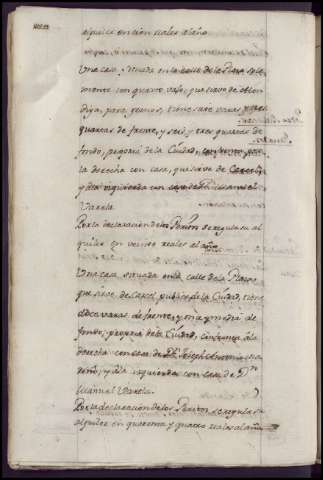 alquiler en cien reales al año.
Una casa, situada en la calle de la Plaza sola
mente con quarto vajo, que sirve de Alon
diga, para granos, tiene siete varas y tres
quartas de frente, y seis y tres quartas de
fondo, propria de la Ciudad, confronta por
la derecha con casa, que sirve de Carcel,
y dta izquierda con casa de Dn Manuel
Varela.
Por la declaracion de los Peritos se regula su al
quiler en veinte reales al año.
Una casa, situada en la calle de la Plaza,
que sirve de carcel publica de la Ciudad, tiene
doce varas de frente, y onze y media de
fondo; propria de la Ciudad, confronta a la
derecha con casa de Dn Joseph Antonio
y dta izquierda con casa de Dn
Manuel Varela.
Por la declaracion de los Peritos se regula su
alquiler en quarenta y quatro reales al año